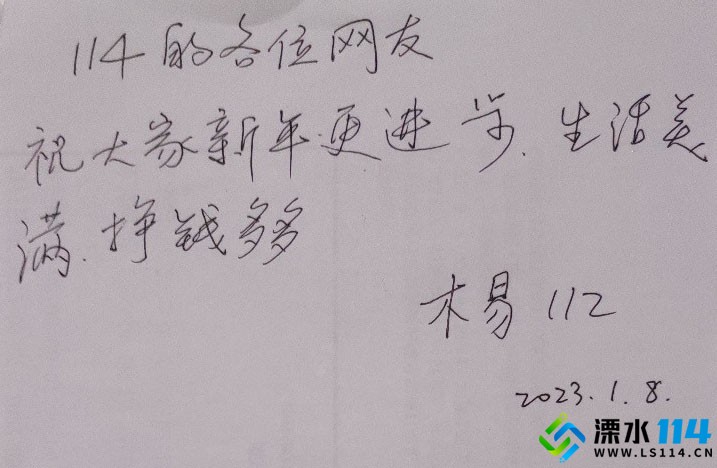 114的各位网友
祝大家新年更进步、生活美
满、挣钱多多
木易112
2023.1.8.
溧水114
WWW.LS114.CN